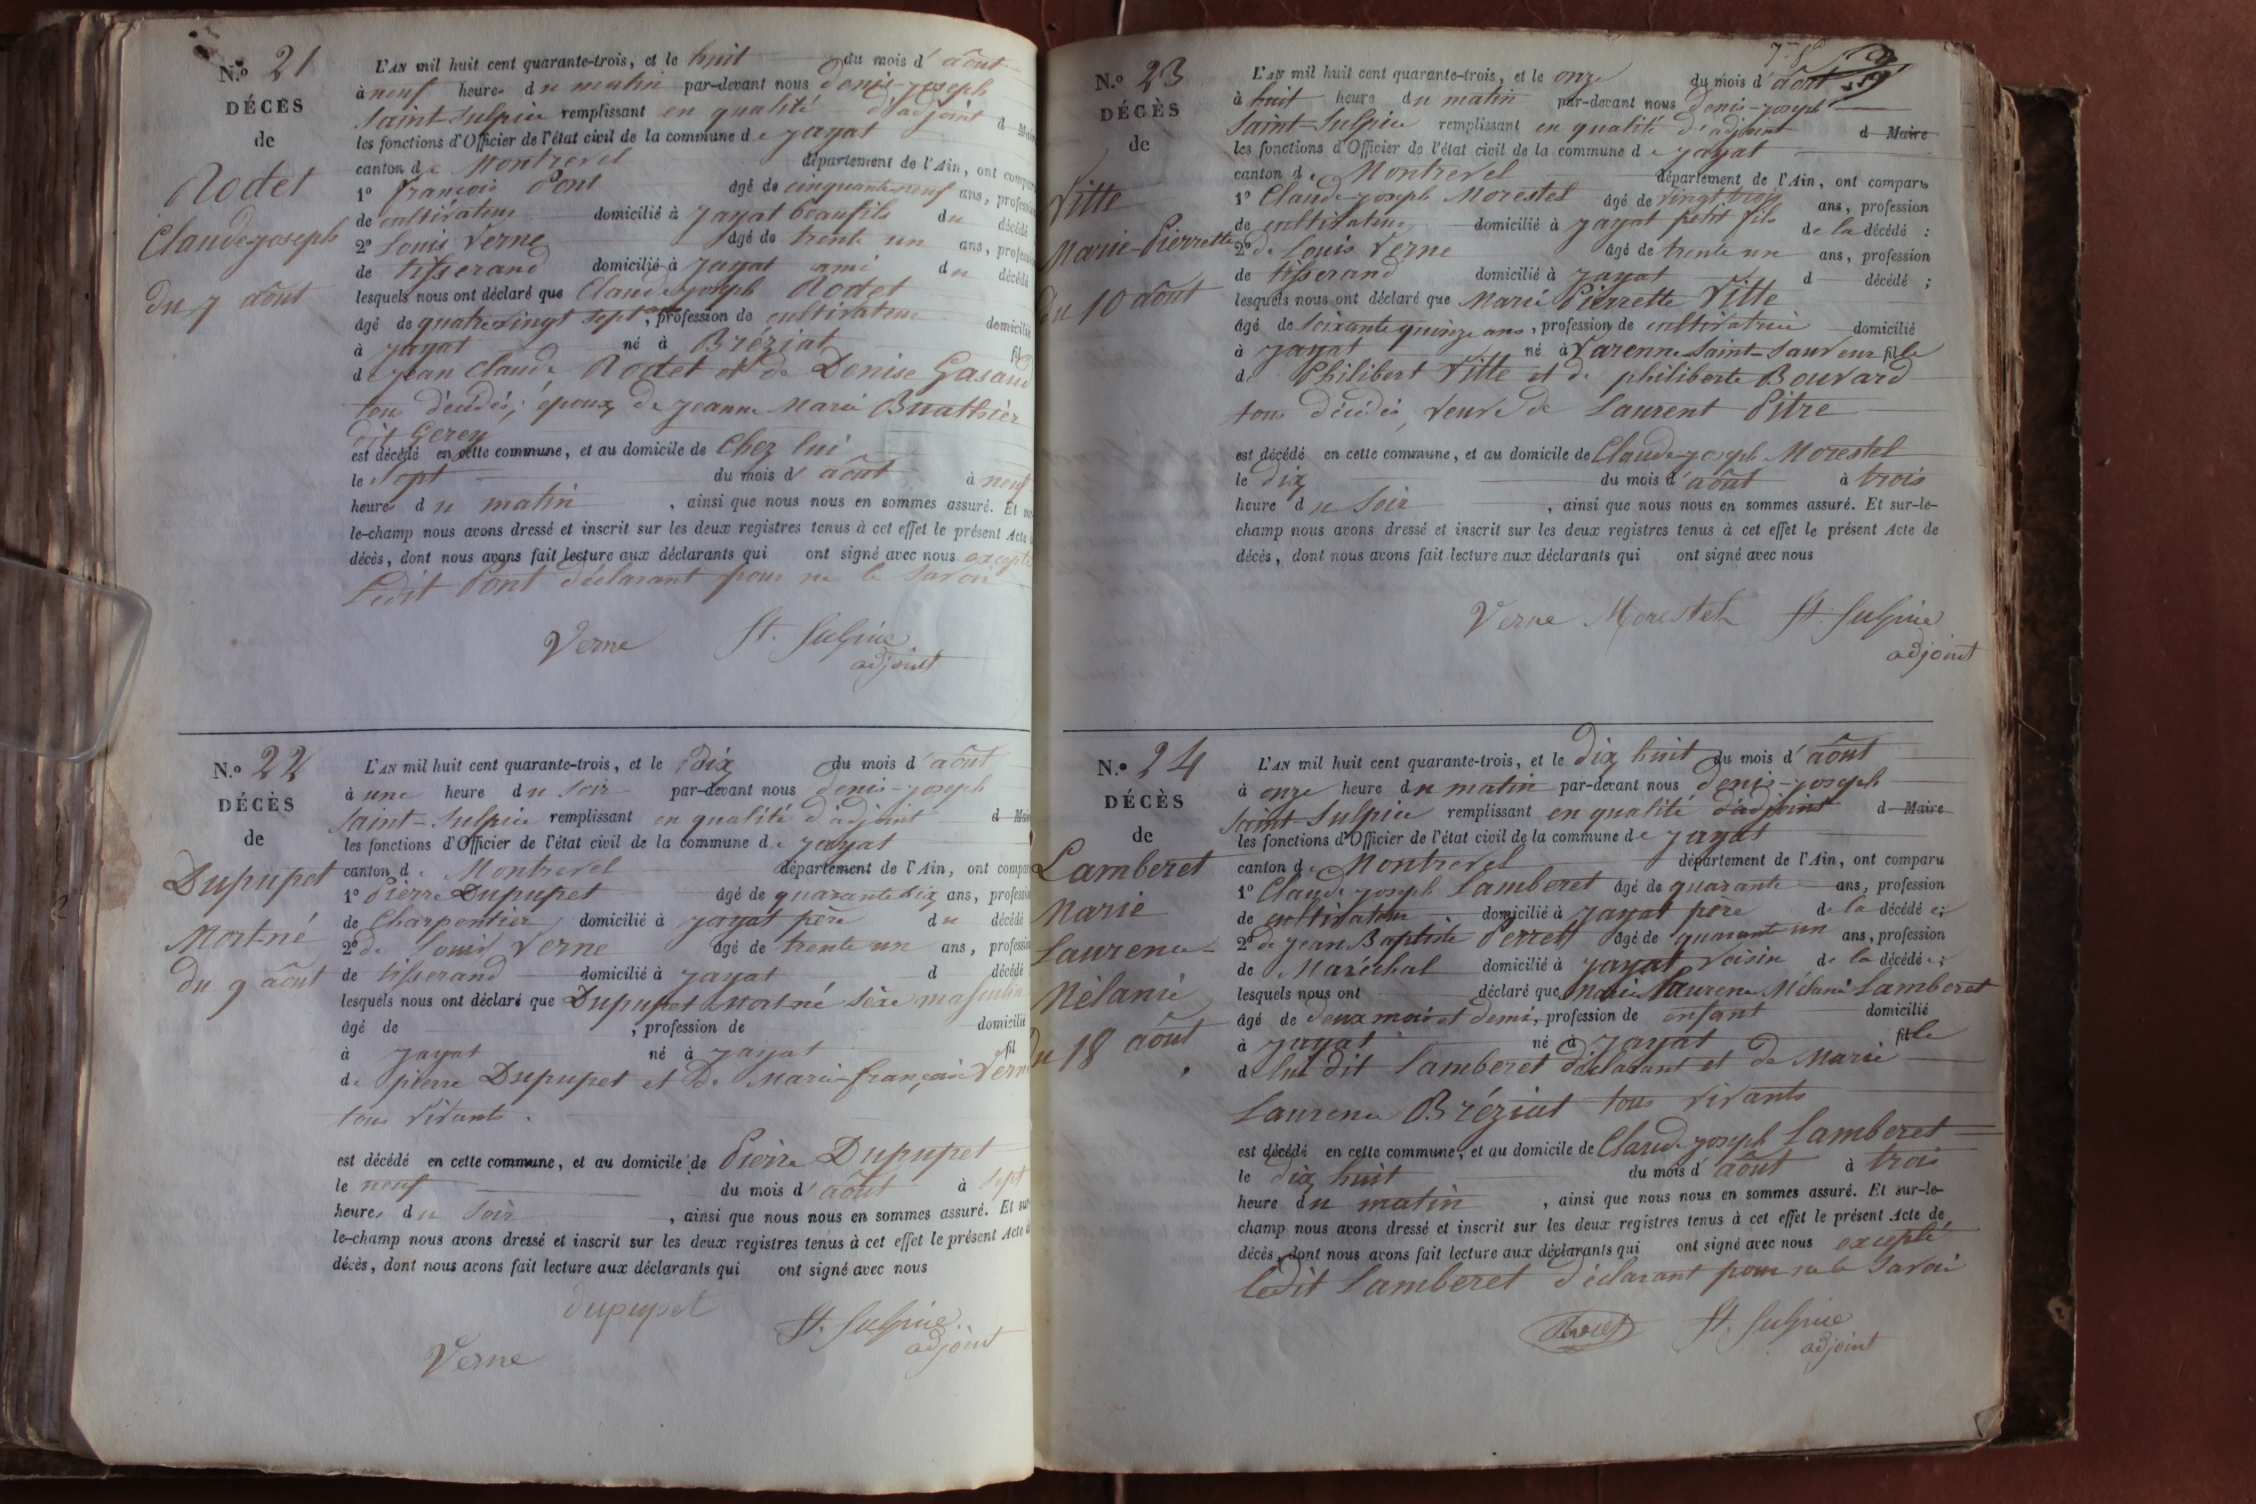 N.o 21
DÉCÈS
de
Rodet
Claude-joseph
du 7 aôut
L'AN mil huit cent quarante-trois, et le huit du mois d' aôut
à neuf heures du matin par-devant nous denis-joseph
Saint-Sulpice remplissant en qualité d'adjoint d Maire
les fonctions d'Officier de l'état civil de la commune de jayat
canton de Montrevel département de l'Ain, ont comparu
1o françois Pont âgé de cinquante-neuf ans, profession
de cultivateur domicilié à jayat beaufils du décédé
2o Louis Verne âgé de trente un ans, profession
de tisserand domicilié à jayat ami du décédé
lesquels nous ont déclaré que Claude joseph Rodet
âgé de quatre vingt sept ans, profession de cultivateur domicilié
à jayat né à Bréziat fils
de jean Claude Rodet et de Denise Gasaud
tous décédés; époux de jeanne Marie Buathier
dit Gerey
est décédé en cette commune, et au domicile de Chez lui
le Sept du mois d' aôut à neuf
heures du matin, ainsi que nous nous en sommes assuré. Et sur-
le-champ nous avons dressé et inscrit sur les deux registres tenus à cet effet le présent Acte de
décès, dont nous avons fait lecture aux déclarants qui ont signé avec nous excepté
Ledit Pont déclarant pour ne le savoir
Verne St. Sulpice
adjoint
N.o 22
DÉCÈS
de
Dupupet
Mort-né
du 9 aôut
L'AN mil huit cent quarante-trois, et le Dix du mois d' aôut
à une heure du soir par-devant nous denis-joseph
Saint-Sulpice remplissant en qualité d'adjoint d Maire
les fonctions d'Officier de l'état civil de la commune de jayat
canton de Montrevel département de l'Ain, ont comparu
1o Pierre Dupupet âgé de quarante dix ans, profession
de Charpentier domicilié à jayat père du décédé
2o de Louis Verne âgé de trente un ans, profession
de tisserand domicilié à jayat d décédé
lesquels nous ont déclaré que Dupupet Mort né Sèxe masculin
âgé de , profession de domicilié
à jayat né à jayat fil
de pierre Dupupet et De Marie-françoise Verne
tous vivants.
est décédé en cette commune, et au domicile de Pierre Dupupet
le neuf du mois d' aôut à Sept
heures du Soir, ainsi que nous nous en sommes assuré. Et sur-
le-champ nous avons dressé et inscrit sur les deux registres tenus à cet effet le présent Acte de
décès, dont nous avons fait lecture aux déclarants qui ont signé avec nous
dupupet St. Sulpice
adjoint
Verne
N.o 23
DÉCÈS
de
Vitte
Marie-Pierrette
du 10 aôut
L'AN mil huit cent quarante-trois, et le onze du mois d' aôut
à huit heure du matin par-devant nous denis-joseph
Saint-Sulpice remplissant en qualité d'adjoint d Maire
les fonctions d'Officier de l'état civil de la commune de jayat
canton de Montrevel département de l'Ain, ont comparu
1o Claude-joseph Morestel âgé de vingt trois ans, profession
de cultivateur domicilié à jayat petit fils de la décédé :
2o de Louis Verne âgé de trente un ans, profession
de tisserand domicilié à jayat d décédé ;
lesquels nous ont déclaré que Marie Pierrette Vitte
âgé de soixante quinze ans, profession de cultivatrice domicilié
à jayat né à Varenne Saint-Sauveur fille
de Philibert Vitte et de philiberte Bouvard
tous décédés, veuve de Laurent Pitre
est décédé en cette commune, et au domicile de Claude-joseph Morestel
le dix du mois d' aôut à trois
heure du Soir, ainsi que nous nous en sommes assuré. Et sur-le-
champ nous avons dressé et inscrit sur les deux registres tenus à cet effet le présent Acte de
décès, dont nous avons fait lecture aux déclarants qui ont signé avec nous
Verne Morestel St. Sulpice
adjoint
N.o 24
DÉCÈS
de
Lamberet
Marie
Laurence
Mélanie
du 18 aôut
L'AN mil huit cent quarante-trois, et le dix huit du mois d' aôut
à onze heure du matin par-devant nous denis-joseph
Saint Sulpice remplissant en qualité d'adjoint d Maire
les fonctions d'Officier de l'état civil de la commune de jayat
canton de Montrevel département de l'Ain, ont comparu
1o Claude joseph Lamberet âgé de quarante ans, profession
de cultivateur domicilié à jayat père de la décédée;
2o de jean Baptiste Perret âgé de quarante un ans, profession
de Maréchal domicilié à jayat voisin de la décédée;
lesquels nous ont déclaré que Marie Laurence Mélanie Lamberet
âgé de deux mois et demi, profession de enfant domicilié
à jayat né à jayat fille
du lui dit Lamberet déclarant et de Marie
Laurence Bréziat tous vivants
est décédé en cette commune, et au domicile de Claude joseph Lamberet
le dix huit du mois d' aôut à trois
heure du matin, ainsi que nous nous en sommes assuré. Et sur-le-
champ nous avons dressé et inscrit sur les deux registres tenus à cet effet le présent Acte de
décès, dont nous avons fait lecture aux déclarants qui ont signé avec nous excepté
ledit Lamberet déclarant pour ne le savoir
St. Sulpice
adjoint